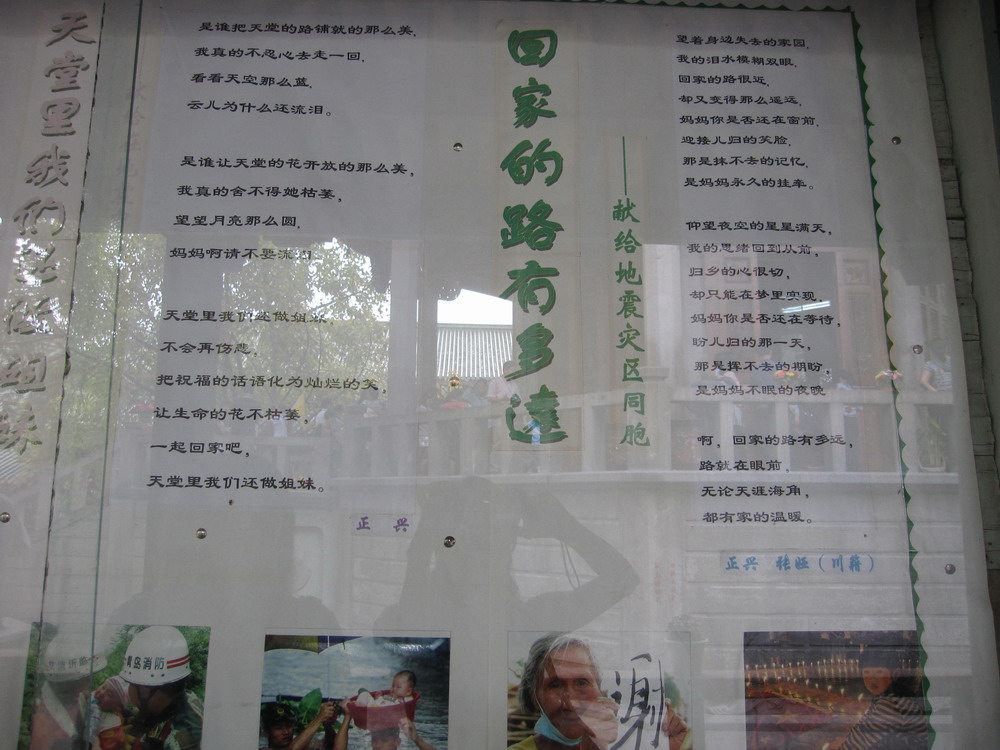 天堂里我们还做姐妹
是谁把天堂的路铺就的那么美，
我真的不忍心去走一回，
看看天空那么蓝，
云儿为什么还流泪。
是谁让天堂的花开放的那么美，
我真的舍不得她枯萎，
望望月亮那么圆，
妈妈啊请不要流泪
天堂里我们还做姐妹，
不会再伤悲，
把祝福的话语化为灿烂的笑，
让生命的花不枯萎，
一起回家吧，
天堂里我们还做姐妹。
正兴
回家的路有多遠
——献给地震灾区同胞
望着身边失去的家园，
我的泪水模糊双眼，
回家的路很近，
却又变得那么遥远，
妈妈你是否还在窗前，
迎接儿归的笑脸，
那是抹不去的记忆，
是妈妈永久的挂牵。
仰望夜空的星星满天，
我的思绪回到从前，
归乡的心很切，
却只能在梦里实现，
妈妈你是否还在等待，
盼儿归的那一天，
那是挥不去的期盼，
是妈妈不眠的夜晚
啊，回家的路有多远，
路就在眼前，
无论天涯海角，
都有家的温暖。
正兴 张娅（川籍）
青岛消防
谢